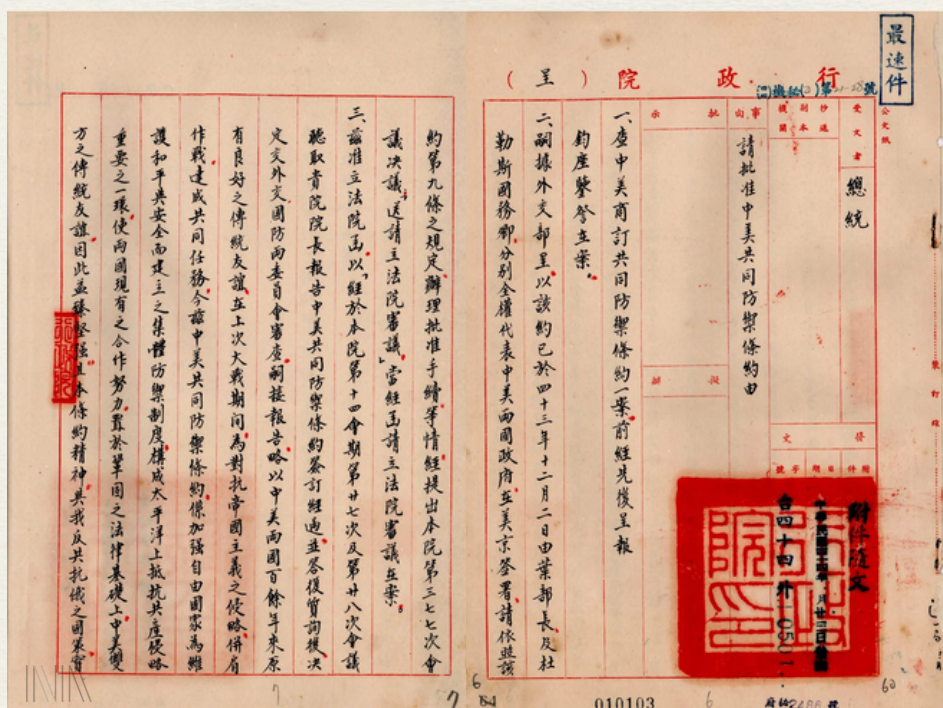 最速件
行政院（呈）
公文紙
受文者
總統
抄送副本機關
事由
請批准中美共同防禦條約由
批示
擬辦
發文
附件
日期
字號
附件隨文
台四十四外
一、查中美商訂共同防禦條約一案前經先後呈報
鈞座鑒詧在案。
二、嗣據外交部呈以該約已於四十三年十二月二日由葉部長及杜
勒斯國務卿分別全權代表中美兩國政府在美京簽署請依照該
裝訂線
010103
約第九條之規定辦理批准手續等情經提出本院第三七七次會
議決議「送請立法院審議」當經函請立法院審議在案。
三、茲准立法院函以「經於本院第十四會期第廿七次及第廿八次會議
聽取貴院院長報告中美共同防禦條約簽訂經過並答復質詢後決
定交外交國防兩委員會審查嗣接報告略以中美兩國百餘年來原
有良好之傳統友誼在上次大戰期間為對抗帝國主義之侵略併肩
作戰達成共同任務今茲中美共同防禦條約係加强自由國家為維
護和平與安全而建立之集體防禦制度構成太平洋上抵抗共產侵略
重要之一環使兩國現有之合作努力置於鞏固之法律基礎上中美雙
方之傳統友誼因此益臻堅强且本條約精神與我反共抗俄之國策實